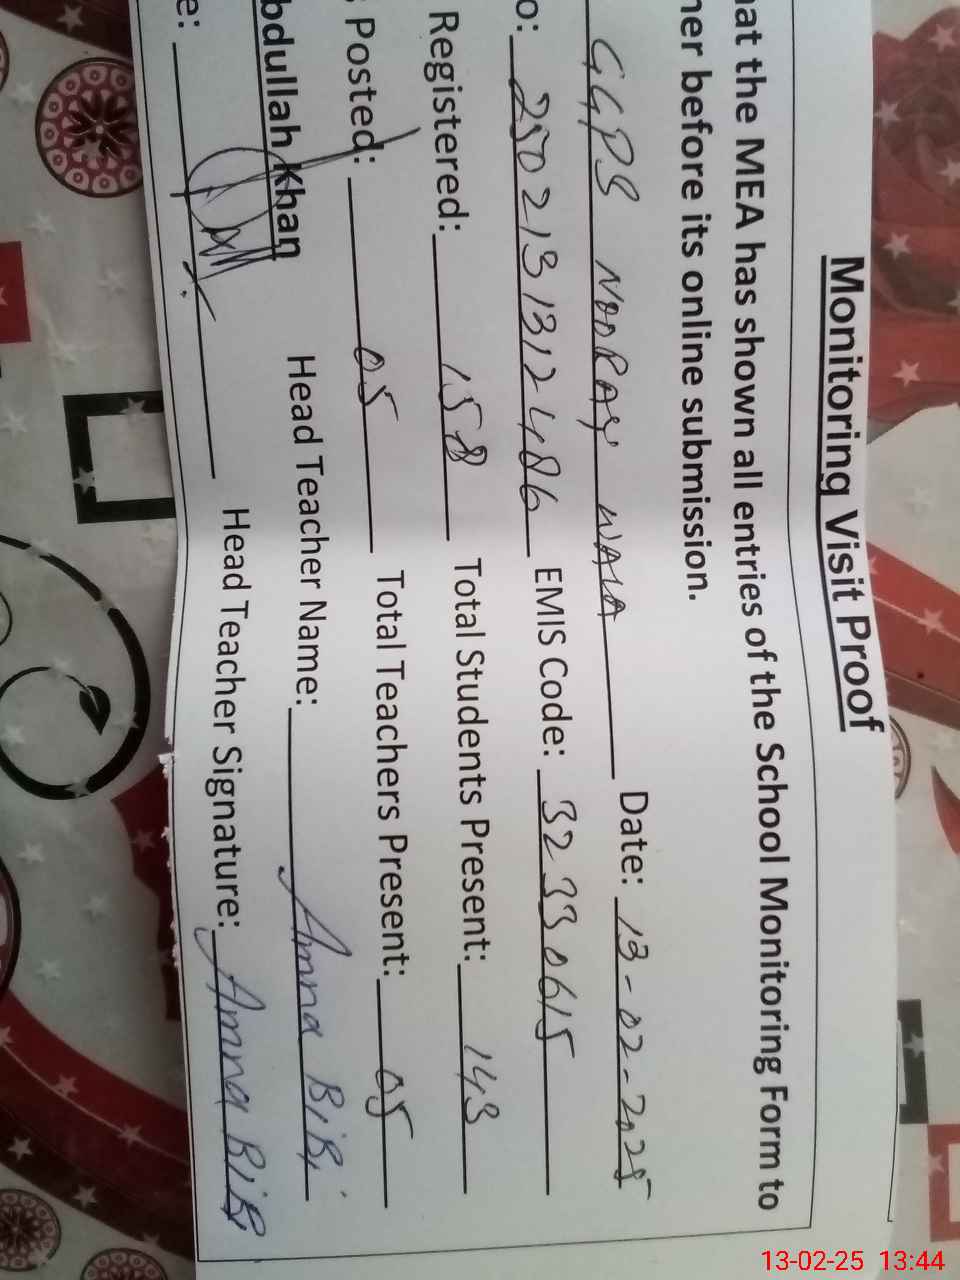 Monitoring Visit Proof
hat the MEA has shown all entries of the School Monitoring Form to
her before its online submission.
GGPS NOORAY WALA Date: 13-02-2025
o: 2502131312486 EMIS Code: 32330615
Registered: 158 Total Students Present: 143
Posted: 05 Total Teachers Present: 05
bdullah Khan Head Teacher Name: Amna BiBi
e: Head Teacher Signature: Amna BiBi
13-02-25 13:44